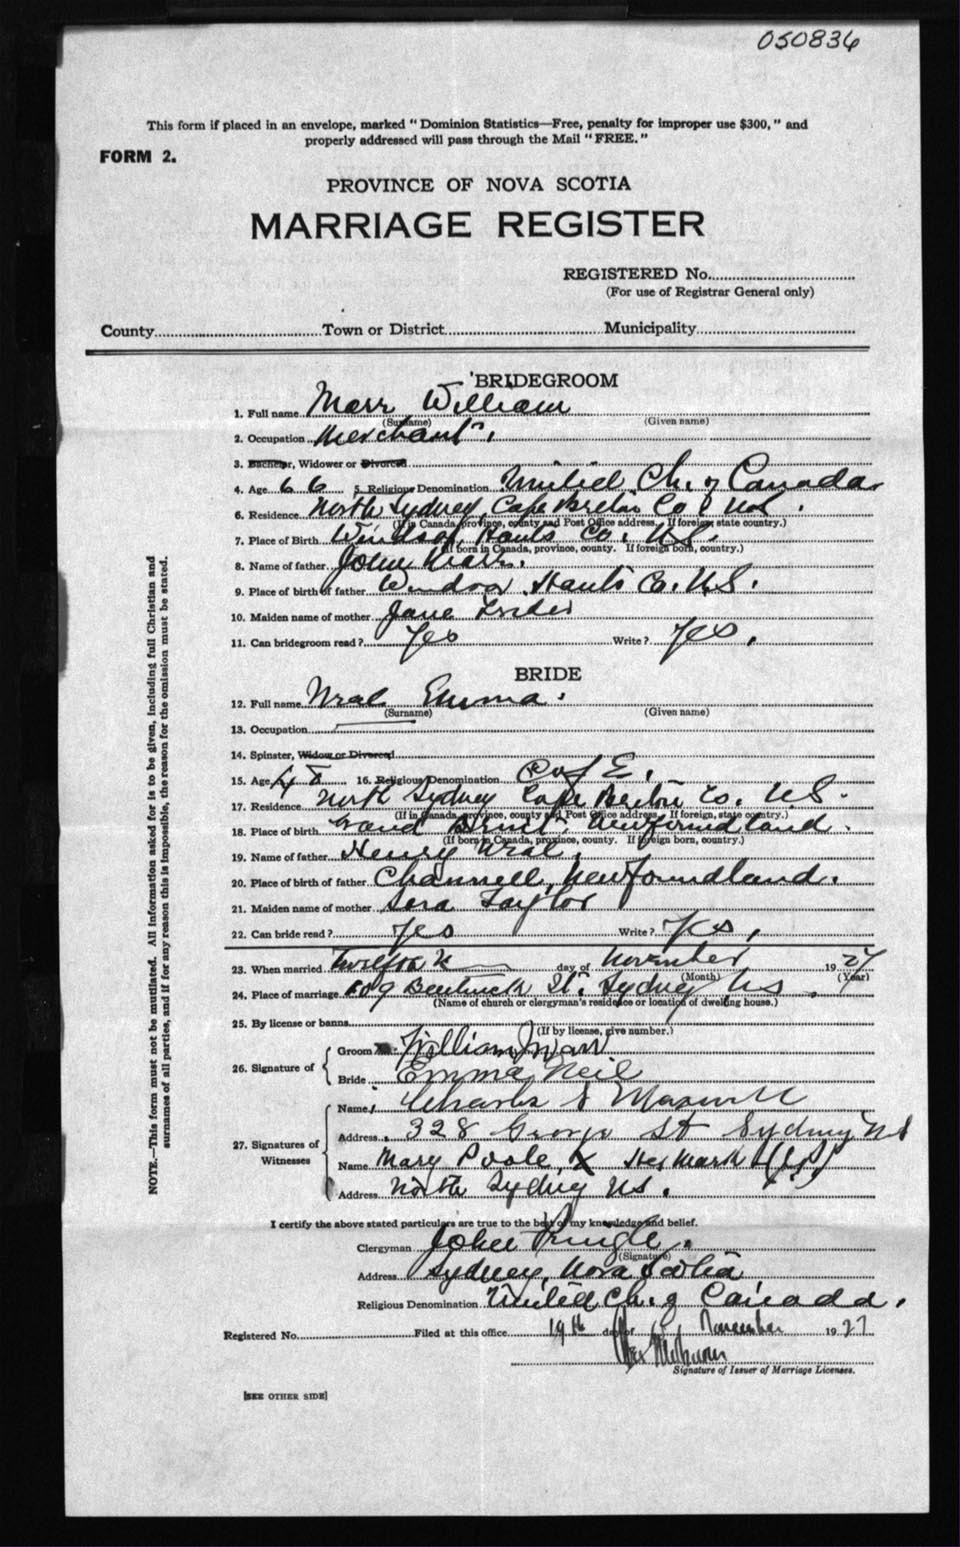 050836
This form if placed in an envelope, marked "Dominion Statistics—Free, penalty for improper use $300," and
properly addressed will pass through the Mail "FREE."
FORM 2.
PROVINCE OF NOVA SCOTIA
MARRIAGE REGISTER
REGISTERED No.
(For use of Registrar General only)
County Town or District Municipality
BRIDEGROOM
1. Full name Marr William
(Surname) (Given name)
2. Occupation Merchant.
3. Bachelor, Widower or Divorced
4. Age 66 5. Religious Denomination United Ch. of Canada
6. Residence North Sydney, Cape Breton Co
(If in Canada, province, county and Post Office address. If foreign, state country.)
7. Place of Birth Windsor, Hants Co. N.S.
(If born in Canada, province, county. If foreign born, country.)
8. Name of father John Marr.
9. Place of birth of father Windsor Hants Co. N.S.
10. Maiden name of mother Jane
11. Can bridegroom read? Yes Write? Yes.
BRIDE
12. Full name Emma.
(Surname) (Given name)
13. Occupation
14. Spinster, Widow or Divorced
15. Age 16. Religious Denomination C of E.
17. Residence North Sydney Cape Breton Co. N.S.
(If in Canada, province, county and Post Office address. If foreign, state country.)
18. Place of birth Newfoundland.
(If born in Canada, province, county. If foreign born, country.)
19. Name of father Henry
20. Place of birth of father Channell, Newfoundland.
21. Maiden name of mother Sara Taylor
22. Can bride read? Yes Write? Yes.
23. When married day of November 1927
(Month) (Year)
24. Place of marriage 609 Bentinck St. Sydney NS.
(Name of church or clergyman's residence or location of dwelling house.)
25. By license or banns
(If by license, give number.)
26. Signature of
Groom William Marr
Bride Emma Neil
27. Signatures of
Witnesses
Name Charles S Maxwell
Address 328 George St Sydney NS
Name Mary Poole, X Her Mark
Address North Sydney NS.
I certify the above stated particulars are true to the best of my knowledge and belief.
Clergyman John Pringle.
(Signature)
Address Sydney, Nova Scotia
Religious Denomination United Ch. of Canada.
Registered No. Filed at this office 19th day of November 1927
Signature of Issuer of Marriage Licenses.
[SEE OTHER SIDE]
NOTE.—This form must not be mutilated. All information asked for is to be given, including full Christian and
surnames of all parties, and if for any reason this is impossible, the reason for the omission must be stated.